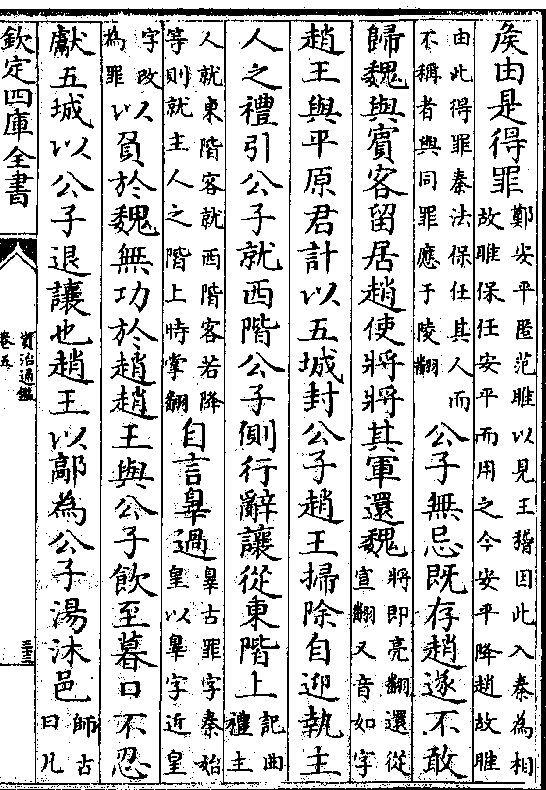 矦由是得罪鄭安平匿范睢以見王稽因此入秦為相
故睢保任安平而用之今安平降趙故睢
由此得罪秦法保任其人而
不稱者與同罪應于陵翻
公子無忌既存趙遂不敢
歸魏與賓客留居趙使將將其軍還魏將即亮翻還從
宣翻又音如字
趙王與平原君計以五城封公子趙王掃除自迎執主
人之禮引公子就西階公子側行辭讓從東階上記曲
禮主
人就東階客就西階客若降
等則就主人之階上時掌翻
自言辠過辠古罪字秦始
皇以辠字近皇
字改
為罪
以負於魏無功於趙趙王與公子飲至暮口不忍
獻五城以公子退讓也趙王以鄗為公子湯沐邑師古
曰凡
欽定四庫全書
資治通鑑
卷五